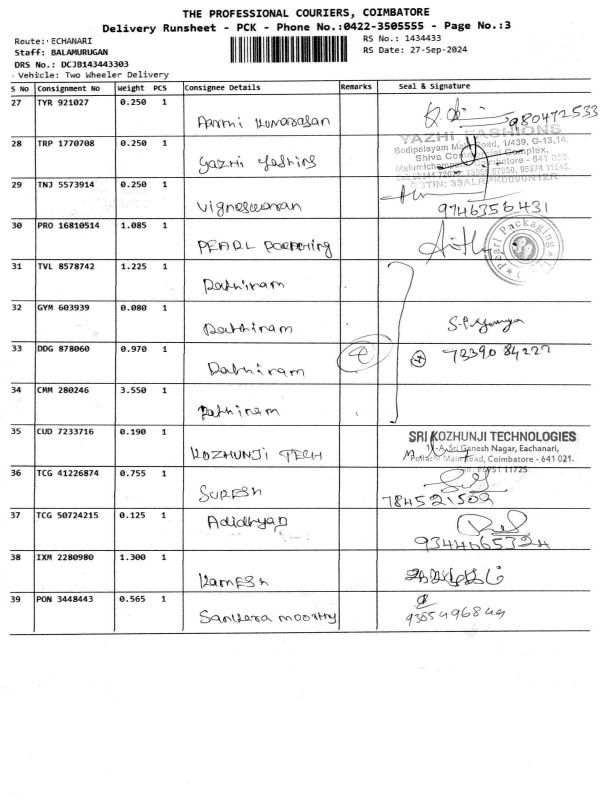 THE PROFESSIONAL COURIERS, COIMBATORE
Delivery Runsheet - PCK - Phone No.:0422-3505555 - Page No.:3
Route: ECHANARI
RS No.: 1434433
Staff: BALAMURUGAN
RS Date: 27-Sep-2024
DRS No.: DCJB143443303
Vehicle: Two Wheeler Delivery
S No Consignment No Weight PCS Consignee Details Remarks Seal & Signature
27 TYR 921027 0.250 1 Aarthi Kumarasan 980472533
28 TRP 1770708 0.250 1 Yazhi Fashins YAZHI FASHIONS
Road, 1/439, G-13,14,
Shiva Complex,
Coimbatore - 641
29 TNJ 5573914 0.250 1 Vigneswaran 9746356431
30 PRO 16810514 1.085 1 PEARL Pearl Packaging
31 TVL 8578742 1.225 1 Rathinam
32 GYM 603939 0.080 1 Rathinam
33 DDG 878060 0.970 1 Rathinam 7339084222
34 CMM 280246 3.550 1 Rathinam
35 CUD 7233716 0.190 1 KOZHUNJI TECH SRI KOZHUNJI TECHNOLOGIES
Sri Ganesh Nagar, Eachanari,
Pollachi Main Road, Coimbatore - 641 021.
36 TCG 41226874 0.755 1 SURESH 784521509
37 TCG 50724215 0.125 1 Adidhyan 9344665324
38 IXM 2280980 1.300 1 KamESh
39 PON 3448443 0.565 1 Sankara moorthy 9385496849